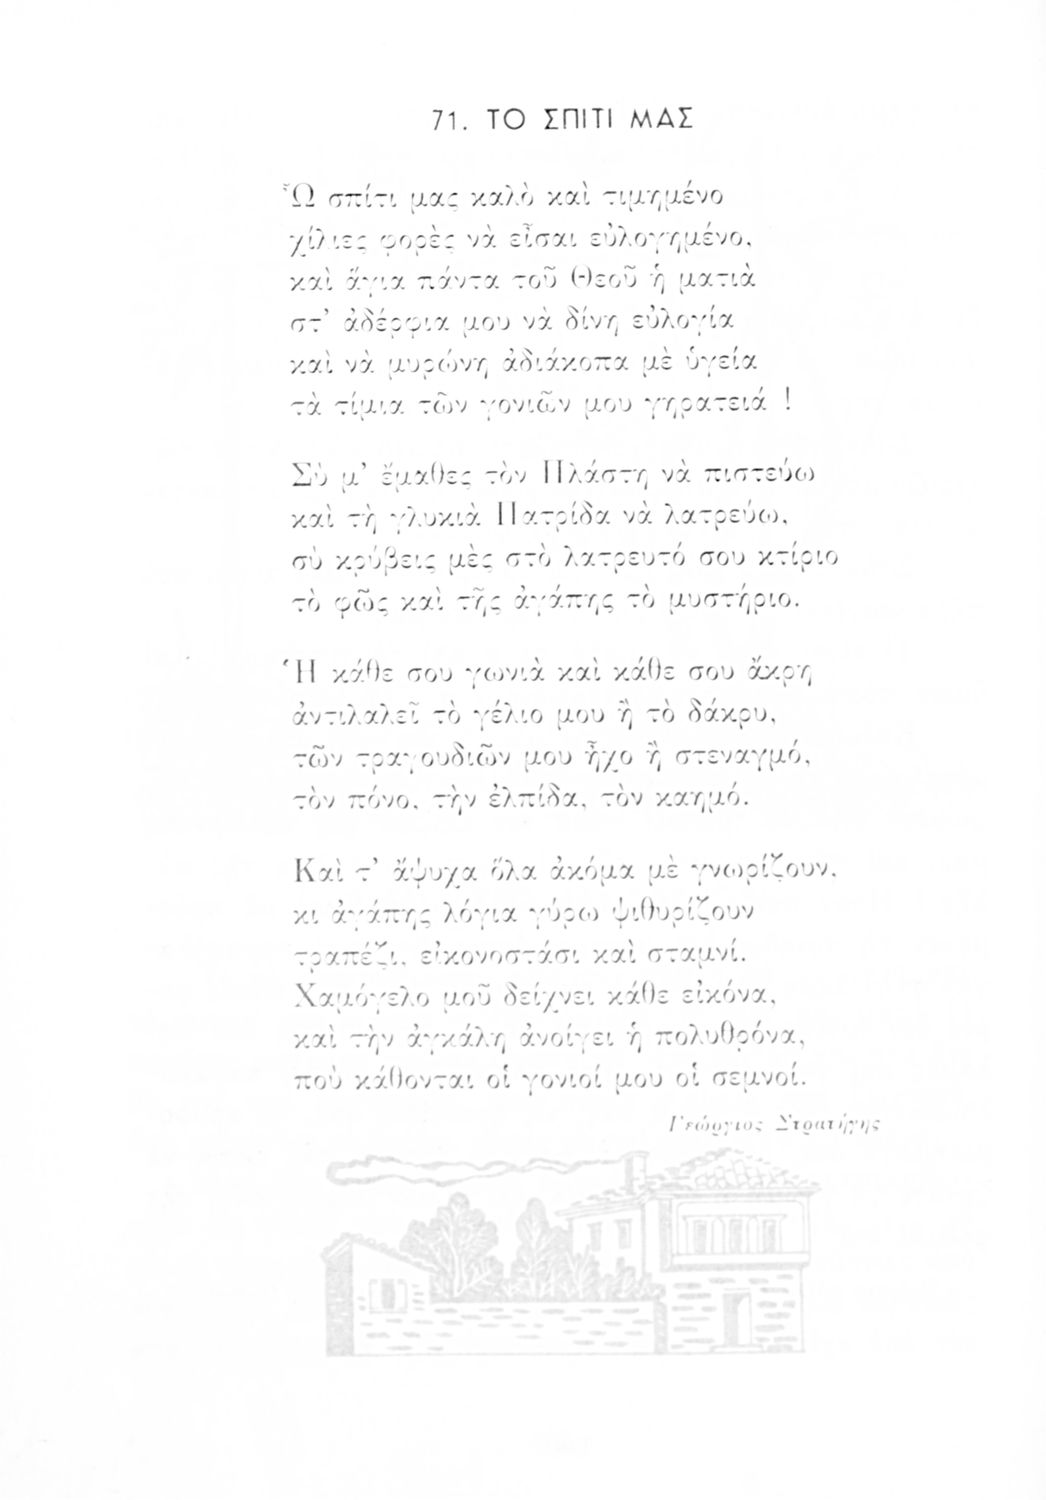 71. ΤΟ ΣΠΙΤΙ ΜΑΣ
Ὦ σπίτι μας καλὸ καὶ τιμημένο
χίλιες φορὲς νὰ εἶσαι εὐλογημένο,
καὶ ἅγια πάντα τοῦ Θεοῦ ἡ ματιὰ
στ' ἀδέρφια μου νὰ δίνη εὐλογία
καὶ νὰ μυρώνη ἀδιάκοπα μὲ ὑγεία
τὰ τίμια τῶν γονιῶν μου γηρατειά !
Σὺ μ' ἔμαθες τὸν Πλάστη νὰ πιστεύω
καὶ τὴ γλυκιὰ Πατρίδα νὰ λατρεύω,
σὺ κρύβεις μὲς στὸ λατρευτό σου κτίριο
τὸ φῶς καὶ τῆς ἀγάπης τὸ μυστήριο.
Ἡ κάθε σου γωνιὰ καὶ κάθε σου ἄκρη
ἀντιλαλεῖ τὸ γέλιο μου ἢ τὸ δάκρυ,
τῶν τραγουδιῶν μου ἦχο ἢ στεναγμό,
τὸν πόνο, τὴν ἐλπίδα, τὸν καημό.
Καὶ τ' ἄψυχα ὅλα ἀκόμα μὲ γνωρίζουν,
κι ἀγάπης λόγια γύρω ψιθυρίζουν
τραπέζι, εἰκονοστάσι καὶ σταμνί.
Χαμόγελο μοῦ δείχνει κάθε εἰκόνα,
καὶ τὴν ἀγκάλη ἀνοίγει ἡ πολυθρόνα,
ποὺ κάθονται οἱ γονιοί μου οἱ σεμνοί.
Γεώργιος Στρατήγης